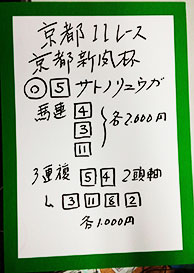 京都11レース
京都新聞杯
◎ 5 サトノリュウガ
馬連 4
3
11
各2.000円
3連複 5 4 2頭軸
↳ 3 11 8 2
各1.000円